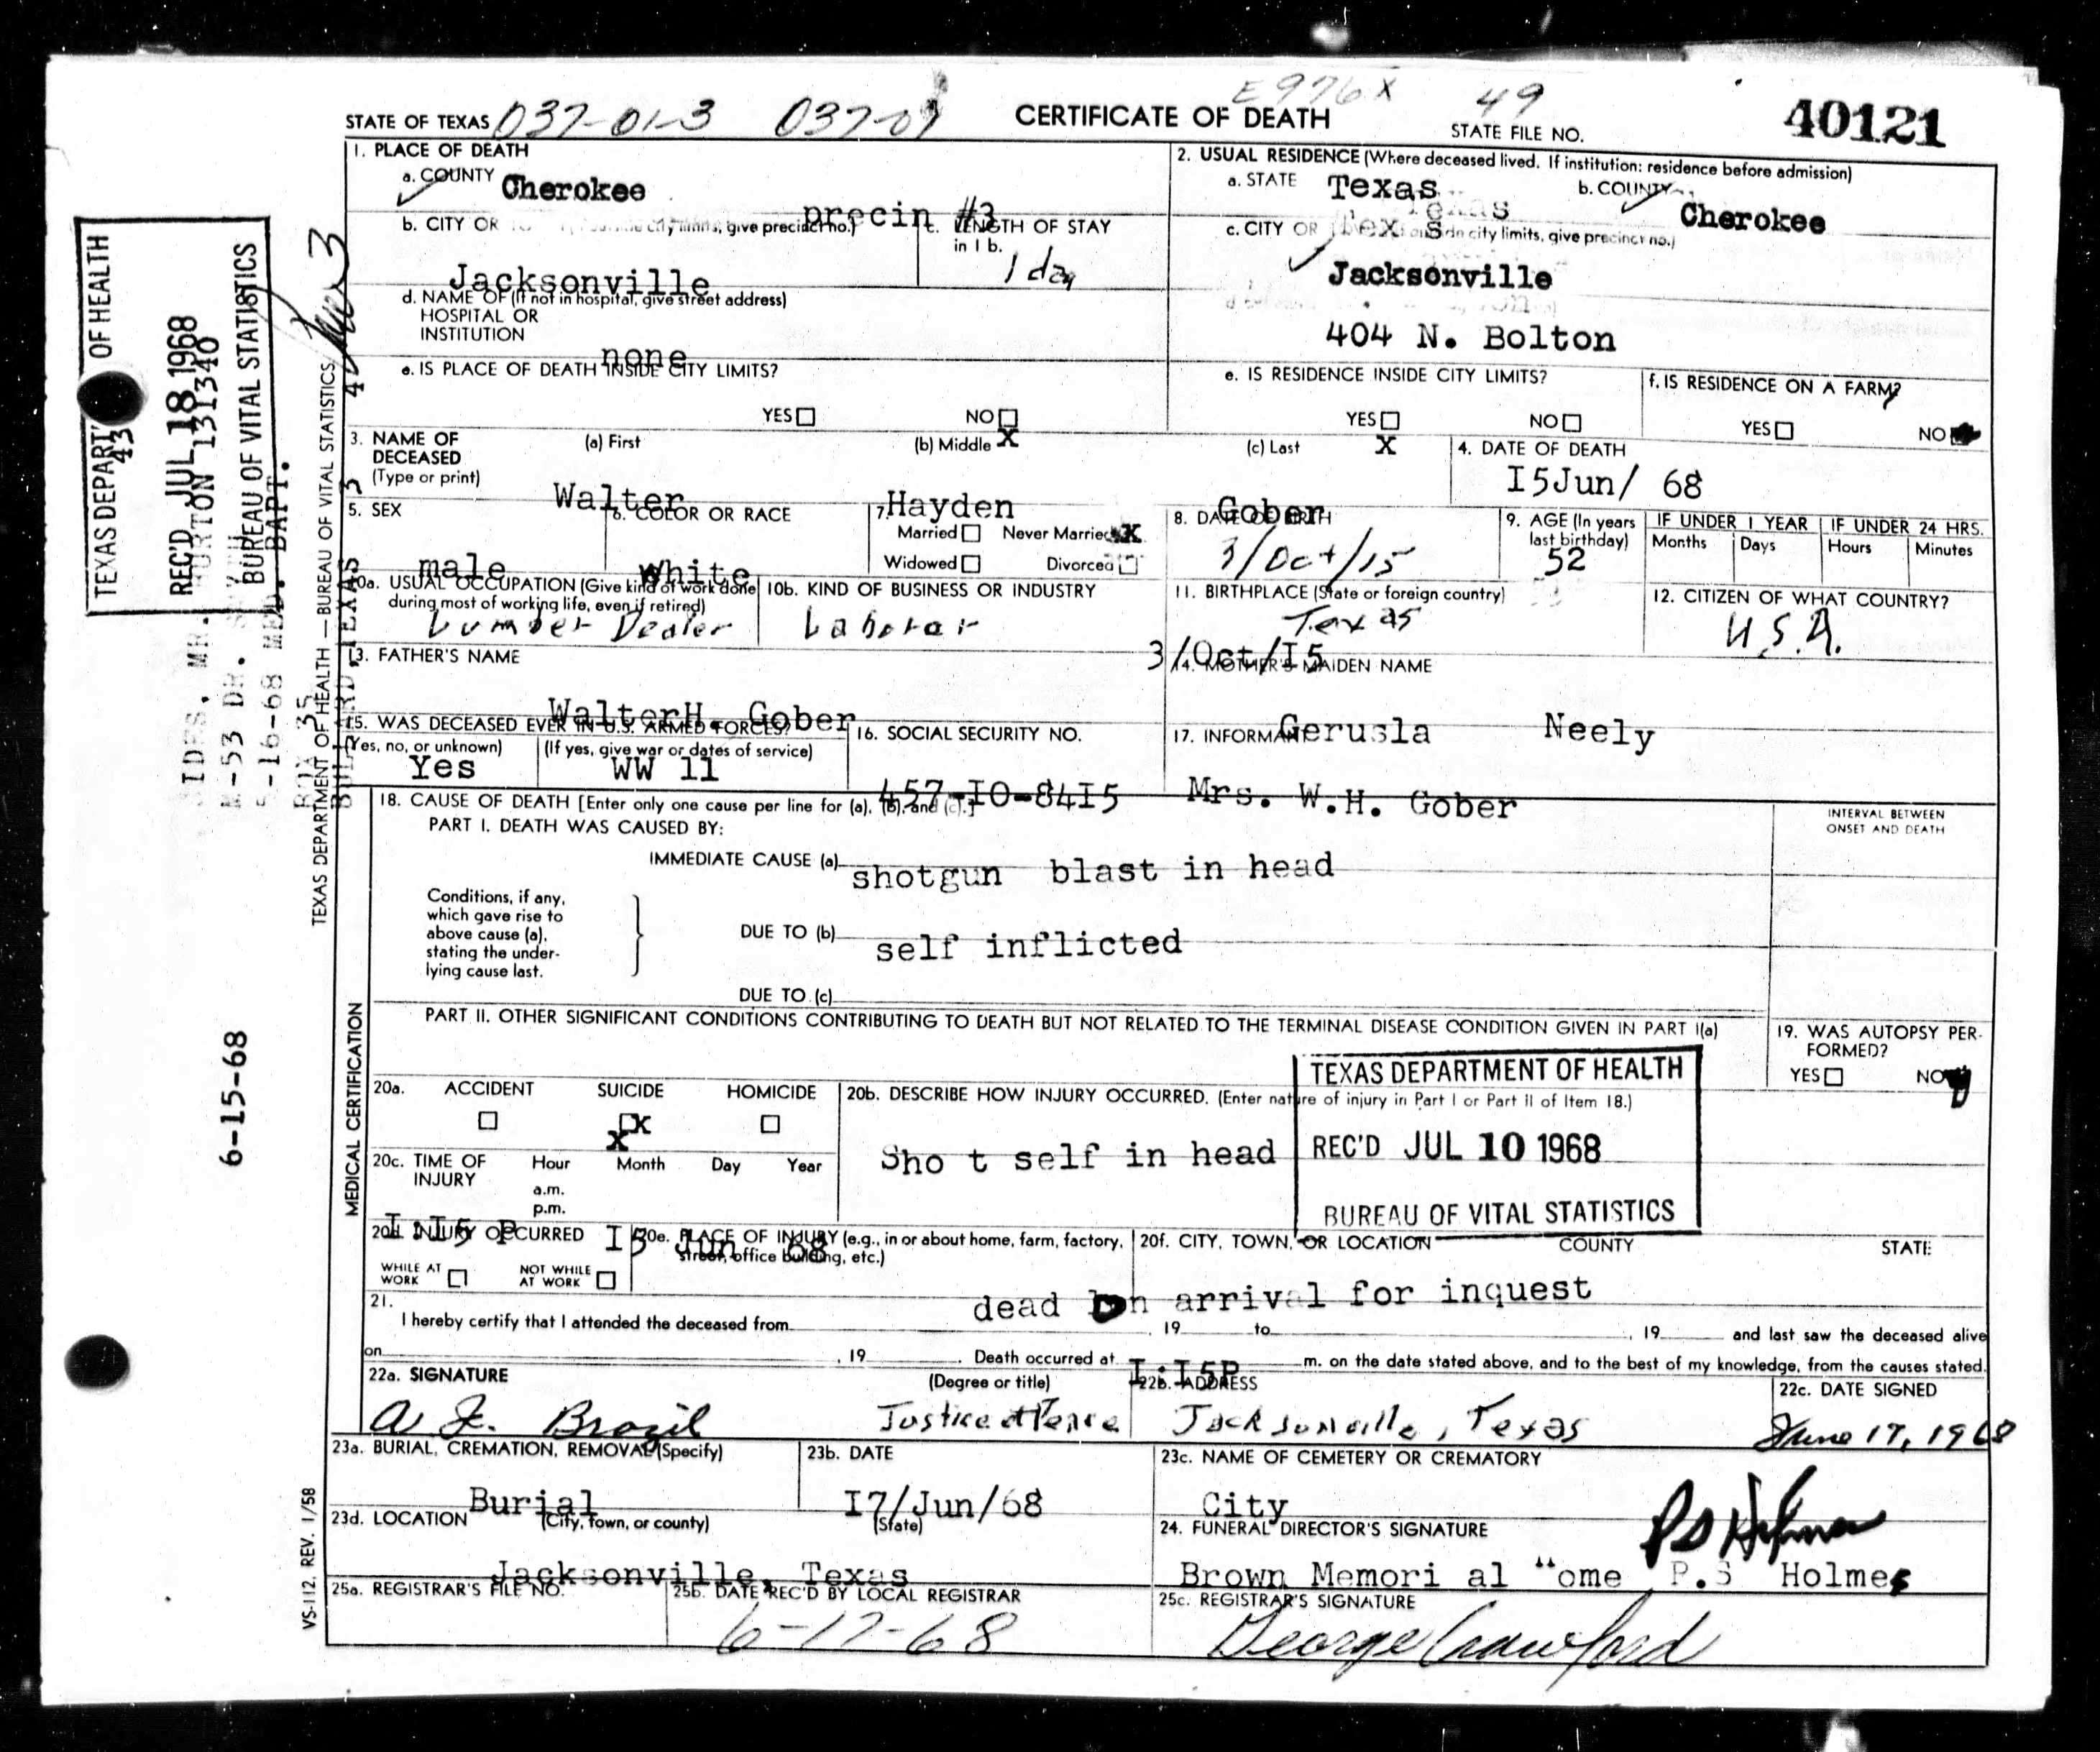 E976X 49
STATE OF TEXAS 037-01-3 037-01 CERTIFICATE OF DEATH STATE FILE NO. 40121
1. PLACE OF DEATH
a. COUNTY Cherokee
precin #3
b. CITY OR give precinct no.) c. LENGTH OF STAY in 1 b.
Jacksonville 1 day
d. NAME OF (If not in hospital, give street address)
HOSPITAL OR
INSTITUTION
none
e. IS PLACE OF DEATH INSIDE CITY LIMITS?
YES NO X
2. USUAL RESIDENCE (Where deceased lived. If institution: residence before admission)
a. STATE Texas b. COUNTY Cherokee
c. CITY OR city limits, give precinct no.)
Jacksonville
404 N. Bolton
e. IS RESIDENCE INSIDE CITY LIMITS?
YES NO
X
f. IS RESIDENCE ON A FARM?
YES NO
3. NAME OF DECEASED (Type or print)
(a) First (b) Middle (c) Last
Walter Hayden Gober
4. DATE OF DEATH
I5Jun/ 68
5. SEX
male
6. COLOR OR RACE
White
7.
Married Never Married X
Widowed Divorced
8. DATE OF BIRTH
3/Oct/15
9. AGE (In years last birthday)
52
IF UNDER 1 YEAR IF UNDER 24 HRS.
Months Days Hours Minutes
10a. USUAL OCCUPATION (Give kind of work done during most of working life, even if retired)
Lumber Dealer
10b. KIND OF BUSINESS OR INDUSTRY
Laborar
11. BIRTHPLACE (State or foreign country)
Texas
3/Oct/I5
12. CITIZEN OF WHAT COUNTRY?
U.S.A.
13. FATHER'S NAME
WalterH. Gober
14. MOTHER'S MAIDEN NAME
Gerusla Neely
15. WAS DECEASED EVER IN U.S. ARMED FORCES?
(Yes, no, or unknown) (If yes, give war or dates of service)
Yes WW 11
16. SOCIAL SECURITY NO.
457-IO-84I5
17. INFORMANT
Mrs. W.H. Gober
18. CAUSE OF DEATH [Enter only one cause per line for (a), (b), and (c).]
PART I. DEATH WAS CAUSED BY:
INTERVAL BETWEEN
ONSET AND DEATH
IMMEDIATE CAUSE (a) shotgun blast in head
Conditions, if any,
which gave rise to
above cause (a),
stating the under-
lying cause last.
DUE TO (b) self inflicted
DUE TO (c)
PART II. OTHER SIGNIFICANT CONDITIONS CONTRIBUTING TO DEATH BUT NOT RELATED TO THE TERMINAL DISEASE CONDITION GIVEN IN PART I(a)
19. WAS AUTOPSY PER-
FORMED?
YES NO
20a. ACCIDENT SUICIDE HOMICIDE
X
X
20b. DESCRIBE HOW INJURY OCCURRED. (Enter nature of injury in Part I or Part II of Item 18.)
Sho t self in head
TEXAS DEPARTMENT OF HEALTH
REC'D JUL 10 1968
BUREAU OF VITAL STATISTICS
20c. TIME OF INJURY Hour Month Day Year
a.m.
p.m.
I:I5 P I5 Jun 68
20d. INJURY OCCURRED
WHILE AT WORK NOT WHILE AT WORK
20e. PLACE OF INJURY (e.g., in or about home, farm, factory, street, office building, etc.)
20f. CITY, TOWN, OR LOCATION COUNTY STATE
dead on arrival for inquest
21.
I hereby certify that I attended the deceased from , 19 to , 19 and last saw the deceased alive
on , 19 . Death occurred at I:I5P m. on the date stated above, and to the best of my knowledge, from the causes stated.
22a. SIGNATURE (Degree or title)
Justice of Peace
22b. ADDRESS
Jacksonville, Texas
22c. DATE SIGNED
June 17, 1968
23a. BURIAL, CREMATION, REMOVAL (Specify)
Burial
23b. DATE
I7/Jun/68
23c. NAME OF CEMETERY OR CREMATORY
City
23d. LOCATION (City, town, or county) (State)
Jacksonville, Texas
24. FUNERAL DIRECTOR'S SIGNATURE
PS Holmes
Brown Memori al ome P.S Holmes
25a. REGISTRAR'S FILE NO.
25b. DATE REC'D BY LOCAL REGISTRAR
6-17-68
25c. REGISTRAR'S SIGNATURE
George Crawford
MEDICAL CERTIFICATION
TEXAS DEPARTMENT OF HEALTH — BUREAU OF VITAL STATISTICS
VS-112. REV. 1/58
TEXAS DEPART OF HEALTH
REC'D JUL 18 1968
BUREAU OF VITAL STATISTICS
6-15-68